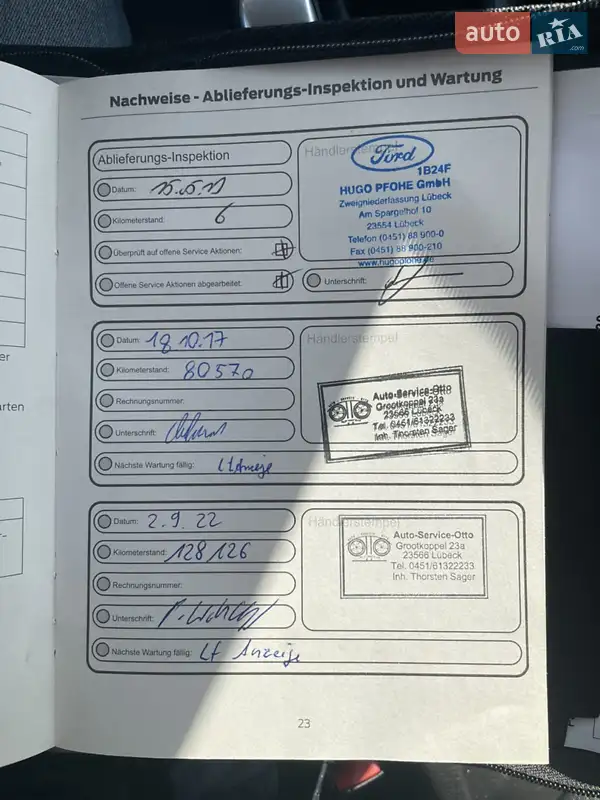 auto RIA .com
Nachweise - Ablieferungs-Inspektion und Wartung
Ablieferungs-Inspektion
Datum:
Kilometerstand: 6
Überprüft auf offene Service Aktionen:
Offene Service Aktionen abgearbeitet:
Händlerstempel
Ford
1B24F
HUGO PFOHE GmbH
Zweigniederlassung Lübeck
Am Spargelhof 10
23554 Lübeck
Telefon (0451) 88 900-0
Fax (0451) 88 900-210
www.hugopfohe.de
Unterschrift:
Datum: 18.10.17
Kilometerstand: 80570
Rechnungsnummer:
Unterschrift:
Nächste Wartung fällig: Lt Anzeige
Händlerstempel
Auto-Service-Otto
Grootkoppel 23a
23566 Lübeck
Tel. 0451/61322233
Inh. Thorsten Sager
Datum: 2.9.22
Kilometerstand: 128126
Rechnungsnummer:
Unterschrift:
Nächste Wartung fällig: Lt Anzeige
Händlerstempel
Auto-Service-Otto
Grootkoppel 23a
23566 Lübeck
Tel. 0451/61322233
Inh. Thorsten Sager
23
arten